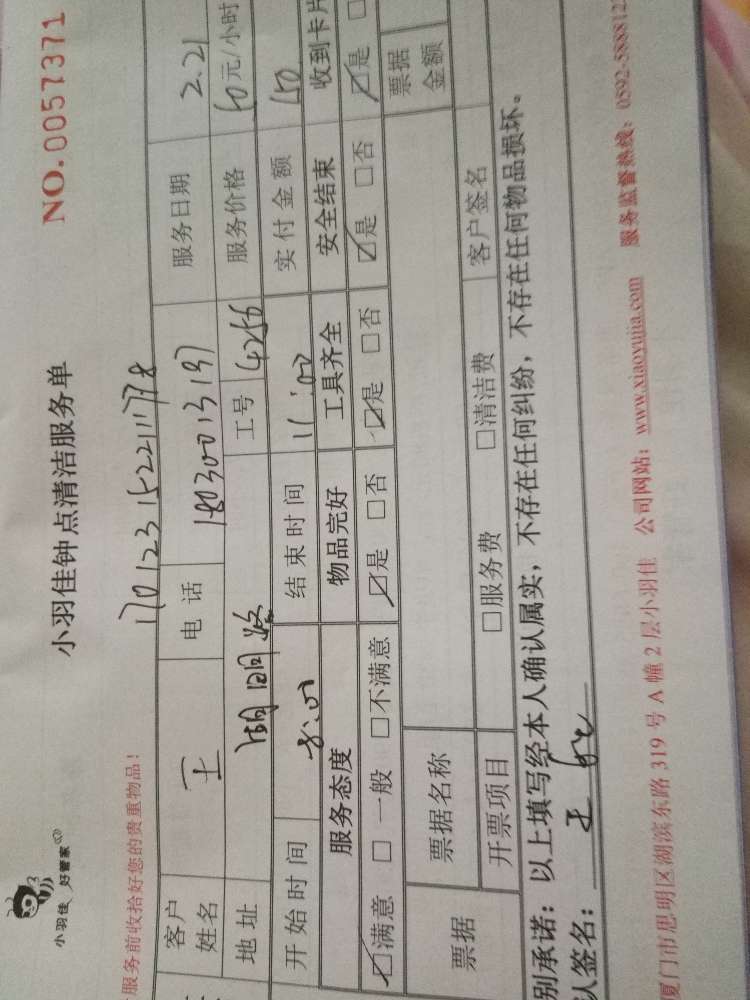 小羽佳 好管家
NO.0057371
小羽佳钟点清洁服务单
服务前收拾好您的贵重物品!
客户姓名 王 电话 18030013197 服务日期 2.21
地址 工号 4256 服务价格 60元/小时
开始时间 8:00 结束时间 11:00 实付金额
服务态度 物品完好 工具齐全 安全结束 收到卡片
☑满意 □一般 □不满意 ☑是 □否 ☑是 □否 ☑是 □否 ☑是 □
票据 票据名称 票据金额
开票项目 □服务费 □清洁费 客户签名
别承诺:以上填写经本人确认属实,不存在任何纠纷,不存在任何物品损坏。
人签名:王
厦门市思明区湖滨东路319号A幢2层小羽佳 公司网站:www.xiaoyujia.com 服务监督热线:0592-5888812